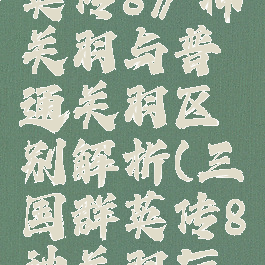 英传8》神
关羽与普
通关羽区
别解析(三
国群英传8
神关羽与